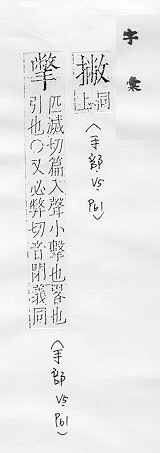 字彙
撇 同上 (手部 V5 P61)
擎 匹滅切篇入聲小擊也畧也
引也〇又必弊切音閉義同
(手部 V5 P61)